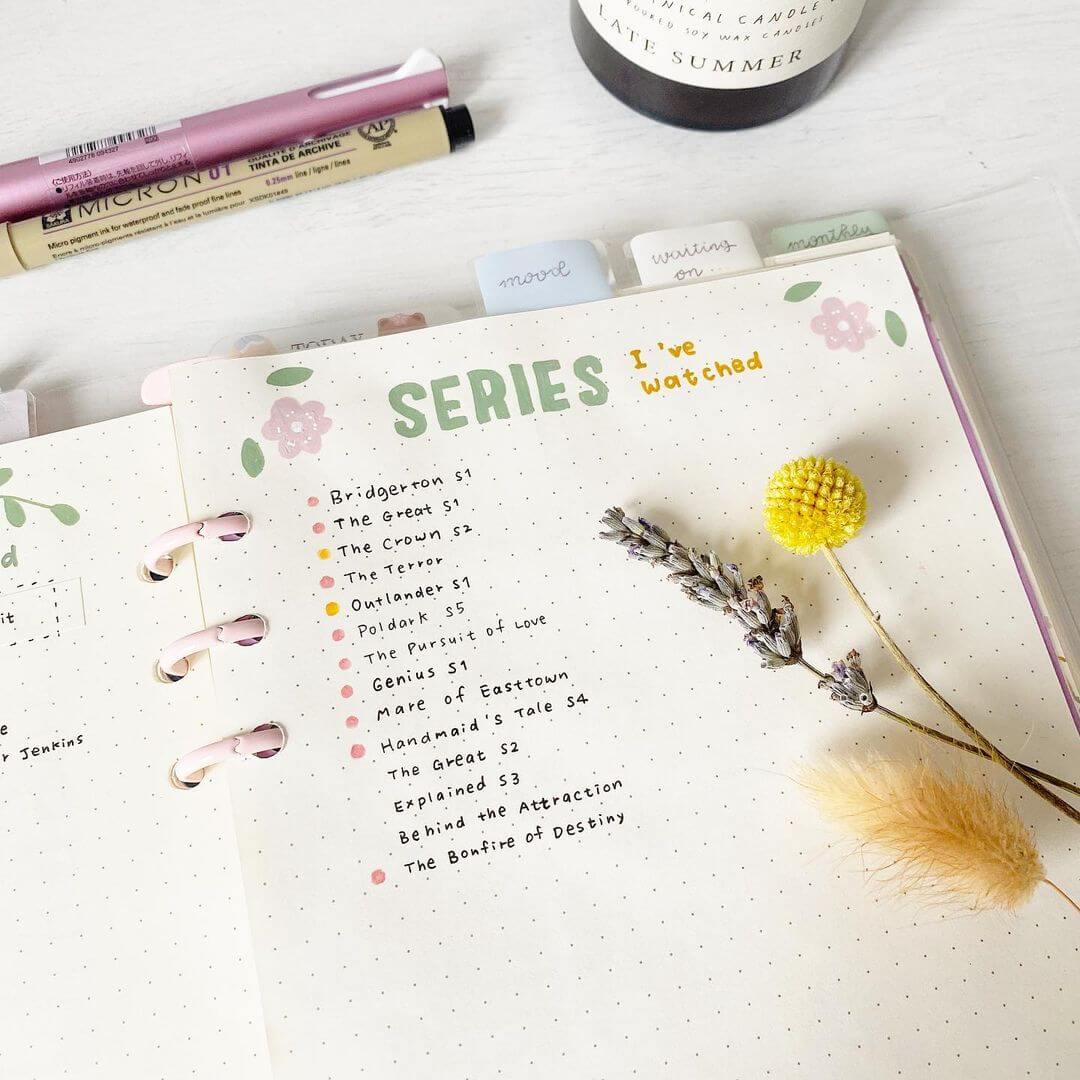 NICAL CANDLE
POURED SOY WAX CANDLES
LATE SUMMER
4902778 094327
MICRON 01
QUALITÉ D'ARCHIVAGE
TINTA DE ARCHIVE
0.25mm line / ligne / lines
XSDK01#49
Micro pigment ink for waterproof and fade proof fine lines
Encre à micro-pigments résistant à l'eau et à la lumière pour
AP
mood
waiting
on ...
monthly
TODAY
SERIES
I've
watched
Bridgerton S1
The Great S1
The Crown S2
The Terror
Outlander S1
Poldark S5
The Pursuit of Love
Genius S1
Mare of Easttown
Handmaid's Tale S4
The Great S2
Explained S3
Behind the Attraction
The Bonfire of Destiny
d
it
e
r Jenkins